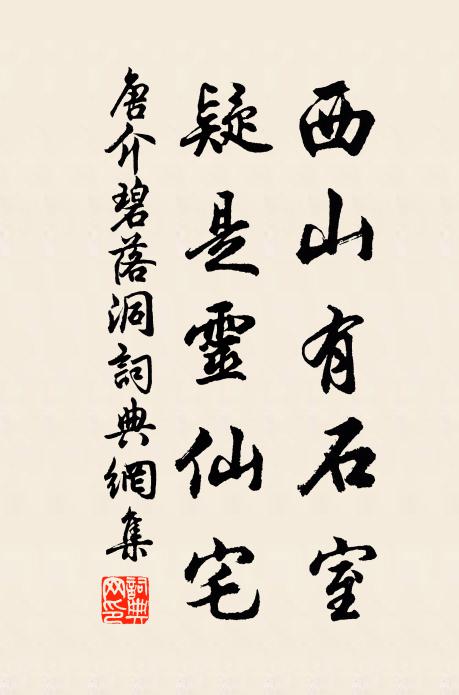 西山有石室
疑是靈仙宅
唐介碧落洞詞典網集
詞典網印